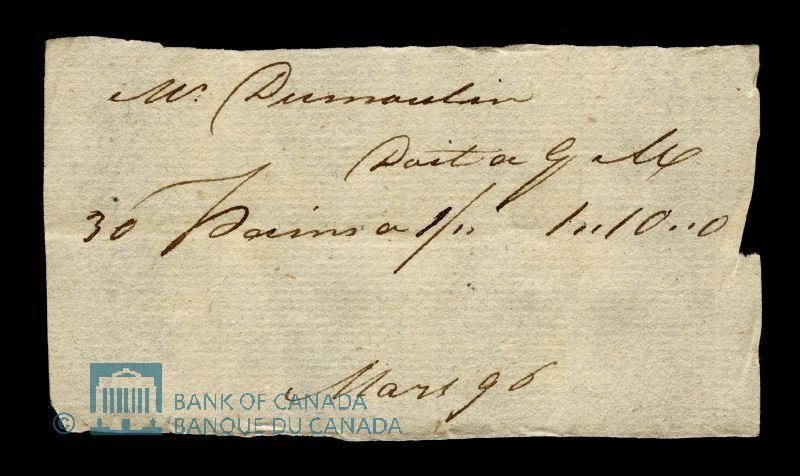 Mr. Dumoulin
Doit a G M
30 Pains a 1/" 1"10"0
Mars 96
© BANK OF CANADA
BANQUE DU CANADA